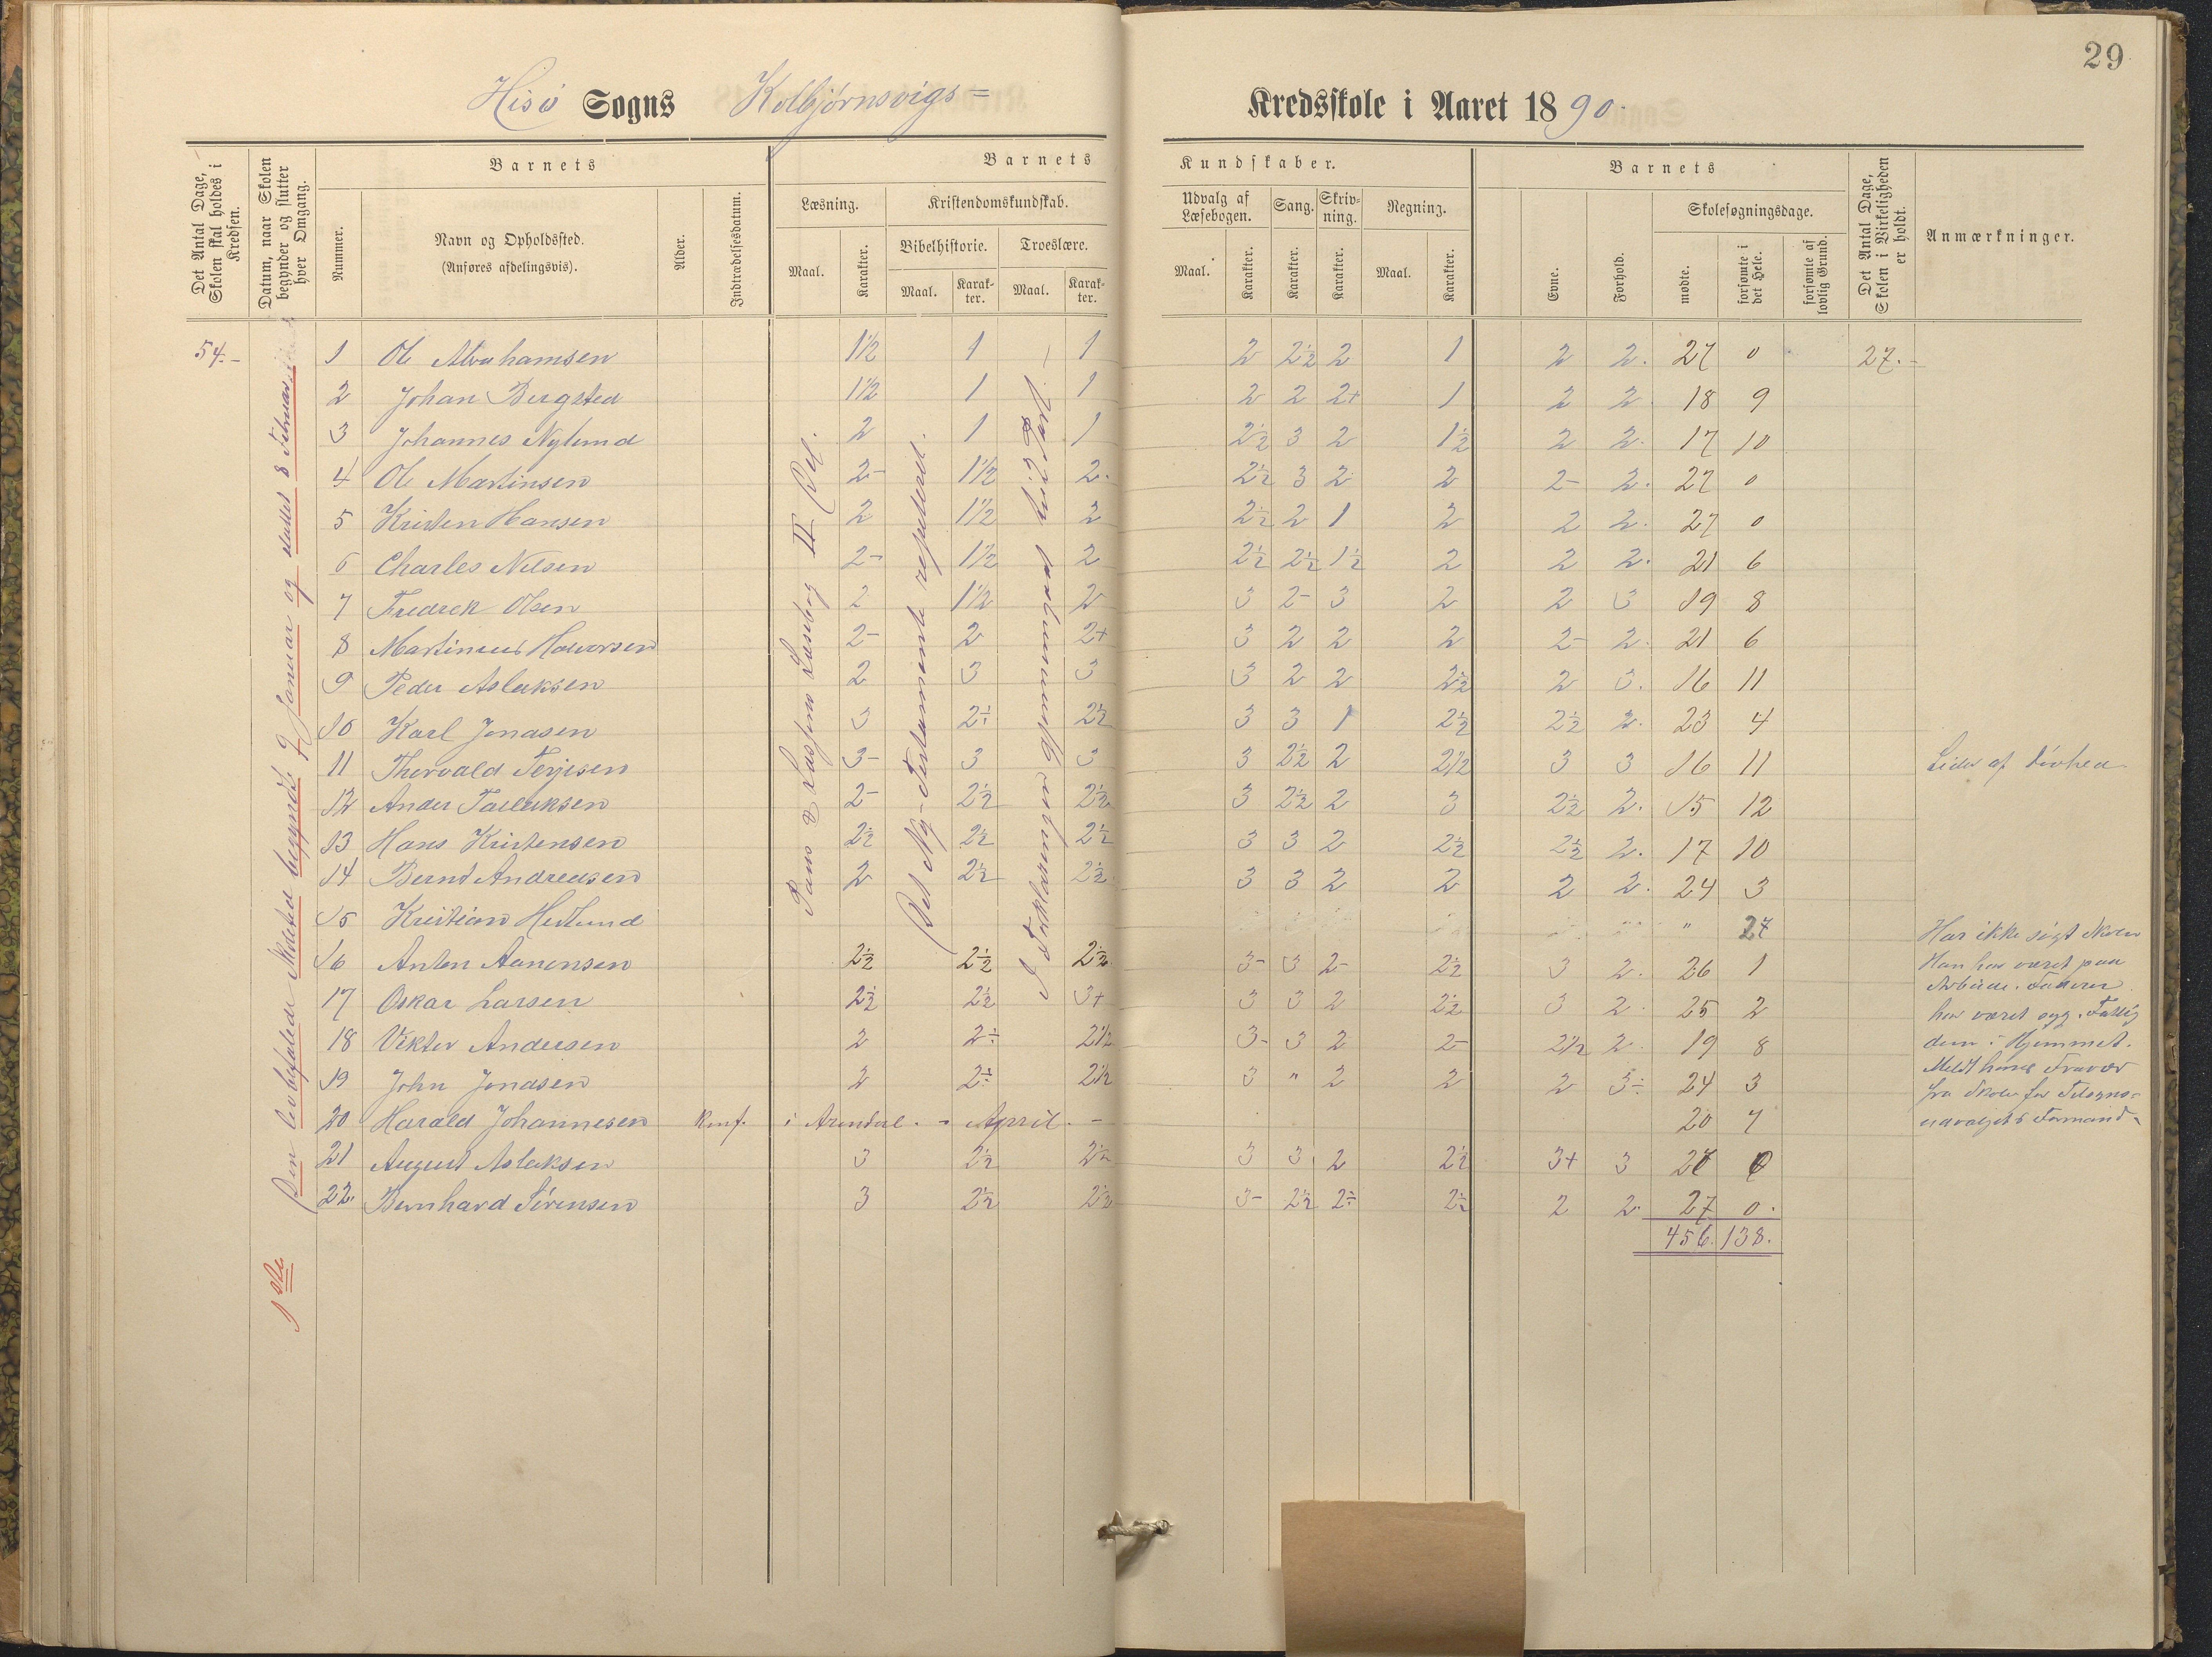 29
Hisø Sogns Kolbjørnsvigs= Kredsskole i Aaret 1890.
Det Antal Dage, Skolen skal holdes i Kredsen.
Datum, naar Skolen begynder og slutter hver Omgang.
Barnets
Nummer.
Navn og Opholdssted.
(Anføres afdelingsvis).
Alder.
Indtrædelsesdatum.
Barnets Kundskaber.
Læsning.
Maal. Karakter.
Kristendomskundskab.
Bibelhistorie. Troeslære.
Maal. Karakter. Maal. Karakter.
Udvalg af Læsebogen. Sang. Skrivning. Regning.
Maal. Karakter. Karakter. Karakter. Maal. Karakter.
Barnets
Evne. Forhold.
Skolesøgningsdage.
mødte. forsømte i det Hele. forsømte af lovlig Grund.
Det Antal Dage, Skolen i Virkeligheden er holdt.
Anmærkninger.
1ste
Den lovbefalede Skoletid begyndte 9 Januar og sluttet 8 Februar
Læsebog II Del.
Det Ny-Testamente repeteret.
I Forklaringen gjennemgaaet
54.- 1 Ole Abrahamsen 1½ 1 1 2 2½ 2 1 2 2. 27 0 27.-
2 Johan Bergsted 1½ 1 1 2 2 2+ 1 2 2 18 9
3 Johannes Nylund 2 1 1 2½ 3 2 1½ 2 2. 17 10
4 Ole Martinsen 2- 1½ 2. 2½ 3 2 2 2- 2. 27 0
5 Kristen Hansen 2 1½ 2 2½ 2 1 2 2 2. 27 0
6 Charles Nilsen 2- 1½ 2 2½ 2½ 1½ 2 2 2. 21 6
7 Fredrek Olsen 2 1½ 2 3 2- 3 2 2 3 19 8
8 Martinius Halvorsen 2- 2 2+ 3 2 2 2 2- 2. 21 6
9 Peder Aslaksen 2 3 3 3 2 2 2½ 2 3. 16 11
10 Karl Jonasen 3 2÷ 2½ 3 3 1 2½ 2½ 2. 23 4
11 Thorvald Terjesen 3- 3 3 3 2½ 2 2½ 3 3 16 11 Lider af Døvhed
12 Anders Tallaksen 2- 2½ 2½ 3 2½ 2 3 2½ 2. 15 12
13 Hans Kristensen 2½ 2½ 2½ 3 3 2 2½ 2½ 2. 17 10
14 Bernt Andreasen 2 2½ 2½ 3 3 2 2 2 2. 24 3
15 Kristian Hedlund " 27
16 Anton Aanonsen 2½ 2½ 2½ 3- 3 2- 2½ 3 2. 26 1
17 Oskar Larsen 2½ 2½ 3+ 3 3 2 2½ 3 2. 25 2
18 Viktor Andersen 2 2÷ 2½ 3- 3 2 2- 2½ 2 19 8
19 John Jonasen 2 2÷ 2½ 3 " 2 2 2 3÷ 24 3
20 Harald Johannesen Konf. i Arendal. - April. - 20 7
21 August Aslaksen 3 2½ 2½ 3 3 2 2½ 3+ 3 27 0
22. Bernhard Sørensen 3 2½ 2½ 3- 2½ 2÷ 2½ 2 2. 27 0.
456. 138.
Har ikke søgt Skolen
Han har været paa
Arbeide. Faderen
har været syg. Fattig
dom i Hjemmet.
Meldt hans Fravær
fra Skolen for Tilsyns=
udvalgets Formand.